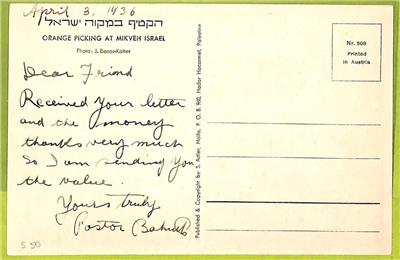 April 3, 1936
הקטיף במקוה ישראל
ORANGE PICKING AT MIKVEH ISRAEL
Photo: J. Benor-Kalter
Dear Friend
Received your letter
and the money
thanks very much
So I am sending you
the value.
Yours truly
Pastor
$50
Published & Copyright by S. Adler, Haifa, P. O. B. 910, Hadar Hacarmel, Palestine
Nr. 908
Printed
in Austria